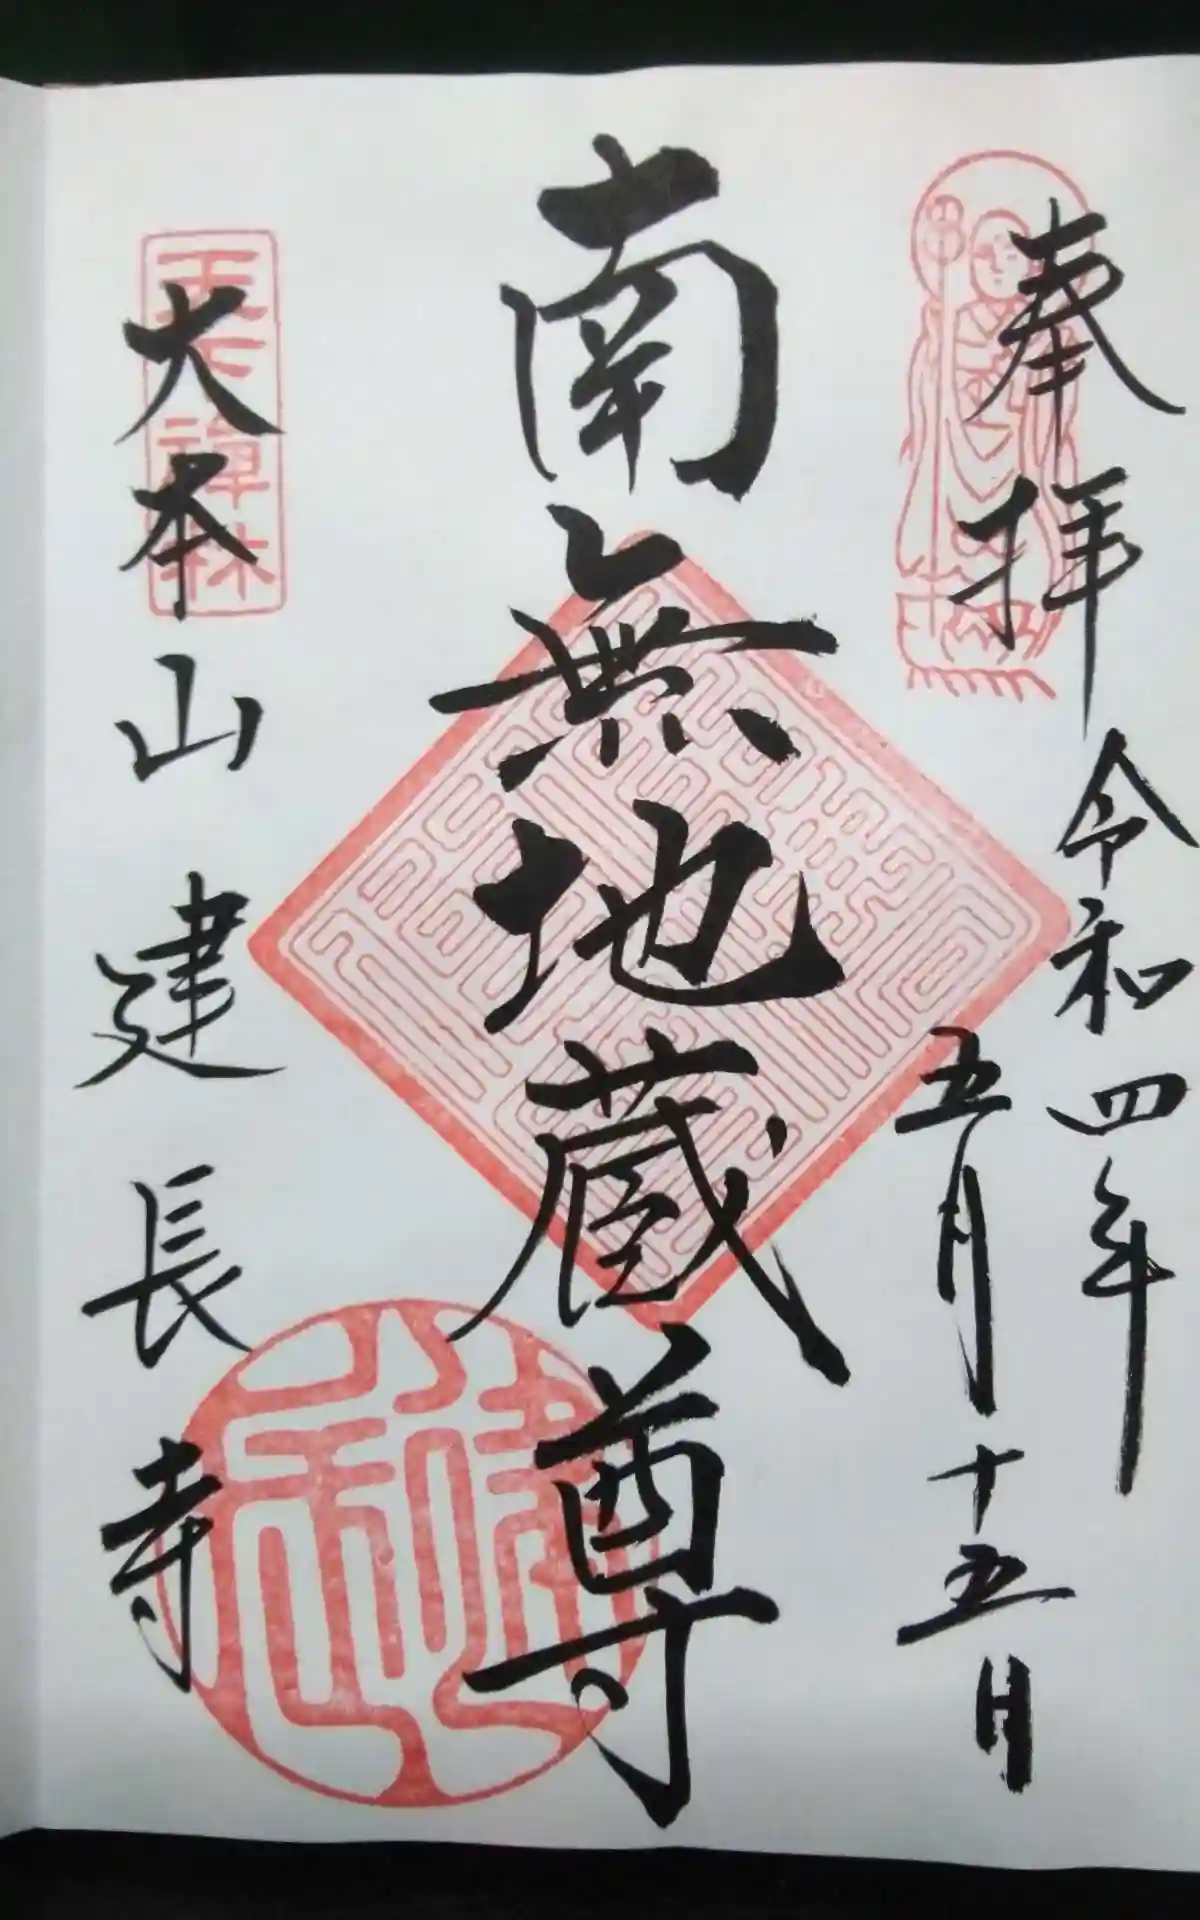 奉拝
令和四年
五月十五日
南無地蔵尊
天下禅林
大本山建長寺